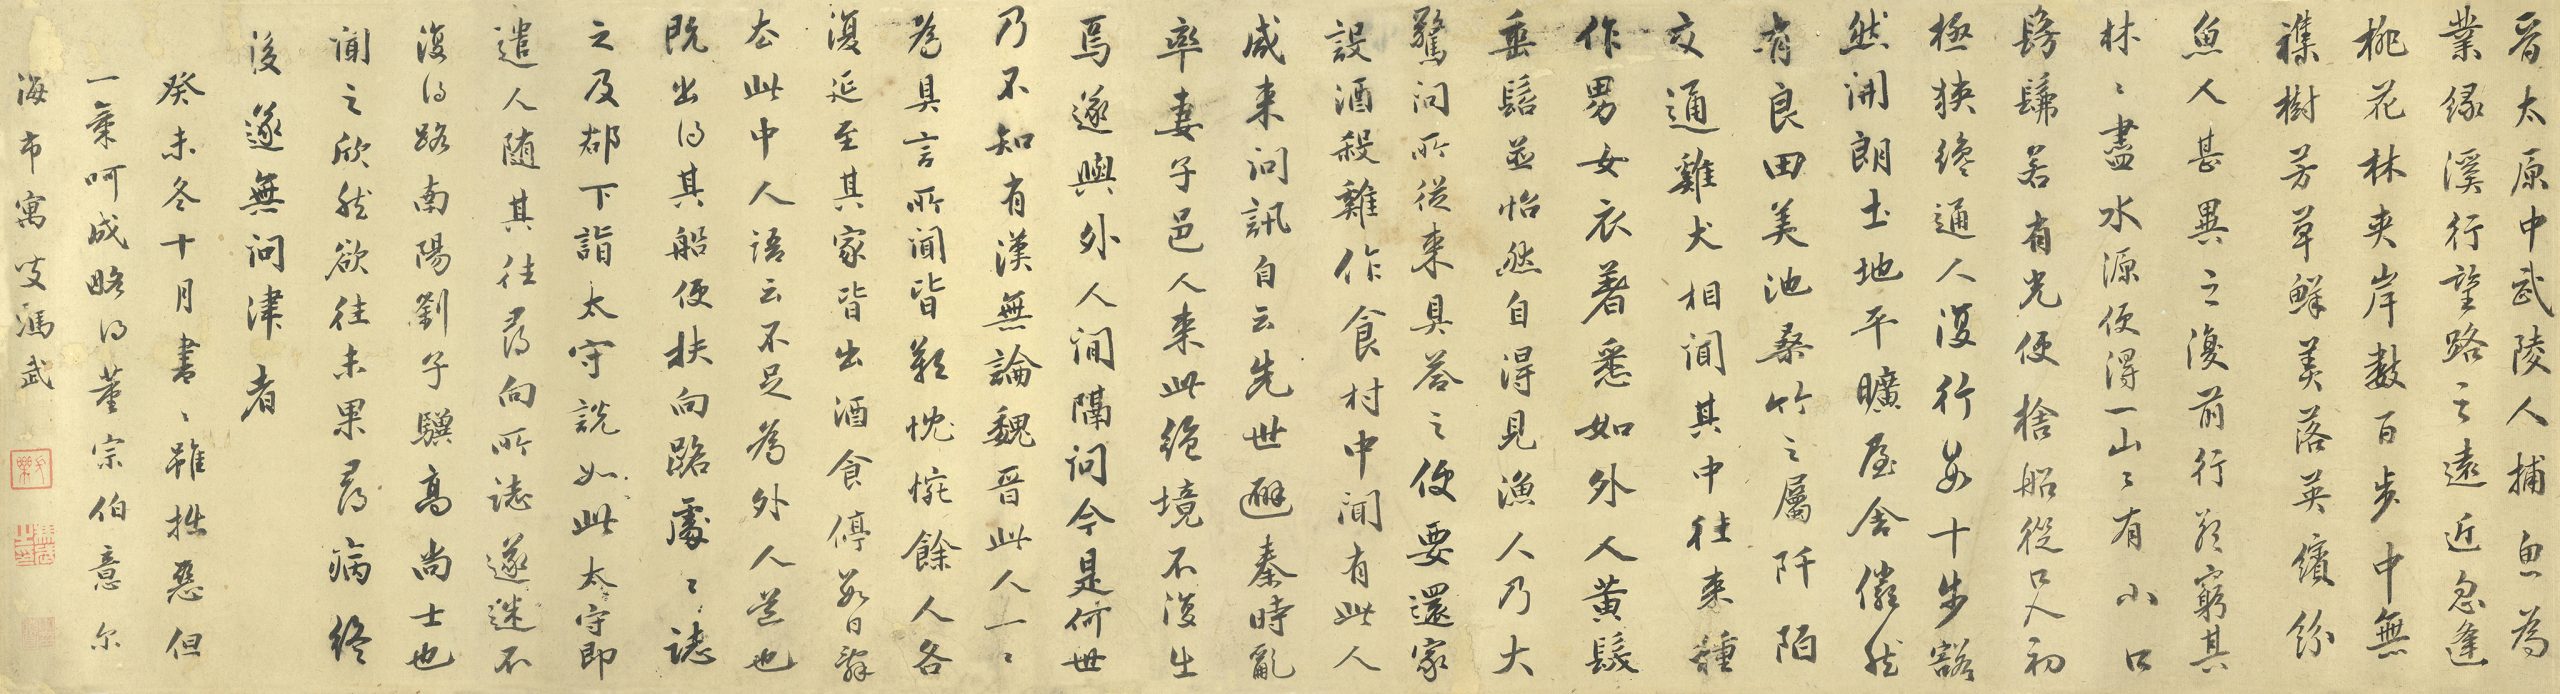 晉太原中武陵人捕魚為
業緣溪行𢖍路之遠近忽逢
桃花林夾岸數百步中無
襍樹芳草鮮美落英繽紛
魚人甚異之復前行欲窮其
林〻盡水源便得一山〻有小口
髣髴若有光便捨船從口入初
極狹纔通人復行數十步豁
然開朗土地平曠屋舍儼然
有良田美池桑竹之屬阡陌
交通雞犬相聞其中往來種
作男女衣著悉如外人黃髮
垂髫並怡然自得見漁人乃大
驚問所從來具答之便要還家
設酒殺雞作食村中聞有此人
咸來問訊自云先世避秦時亂
率妻子邑人來此絕境不復出
焉遂與外人間隔問今是何世
乃不知有漢無論魏晉此人一〻
為具言所聞皆歎惋餘人各
復延至其家皆出酒食停數日辭
去此中人語云不足為外人道也
既出得其船便扶向路處〻誌
之及郡下詣太守說如此太守即
遣人隨其往尋向所誌遂迷不
復得路南陽劉子驥高尚士也
聞之欣然欲往未果尋病終
後遂無問津者
癸未冬十月書〻雖拙惡但
一氣呵成略得董宗伯意尔
海市寓叟馮武